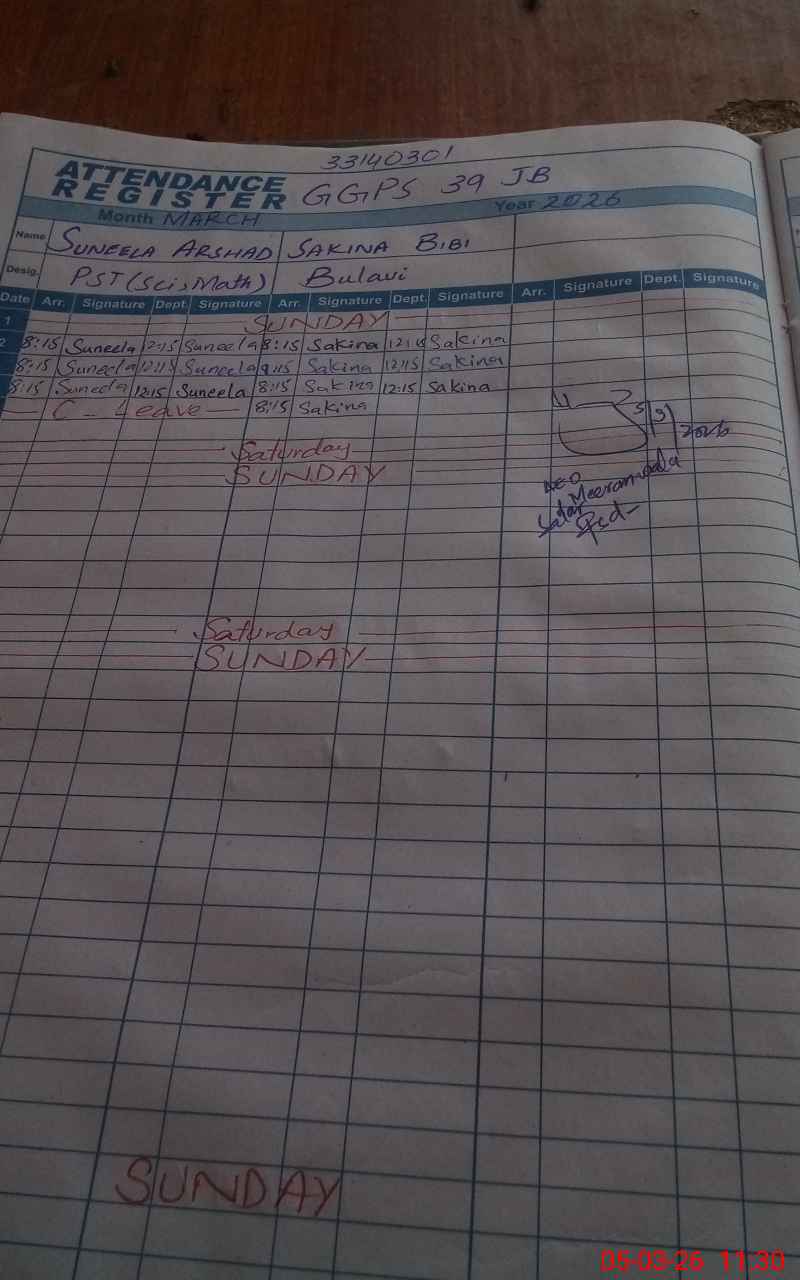 33140301
ATTENDANCE REGISTER GGPS 39 JB
Month MARCH Year 2026
Name SUNEELA ARSHAD SAKINA BIBI
Desig. PST (Sci, Math) Bulavi
Date Arr. Signature Dept. Signature Arr. Signature Dept. Signature Arr. Signature Dept. Signature
1 SUNDAY
2 8:15 Suneela 12:15 Suneela 8:15 Sakina Sakina
8:15 Suneela 12:15 Suneela Sakina 12:15 Sakina
8:15 Suneela 12:15 Suneela 8:15 Sakina 12:15 Sakina
C - Leave 8:15 Sakina
Saturday
SUNDAY
2026
Saturday
SUNDAY
SUNDAY
05-03-26 11:30